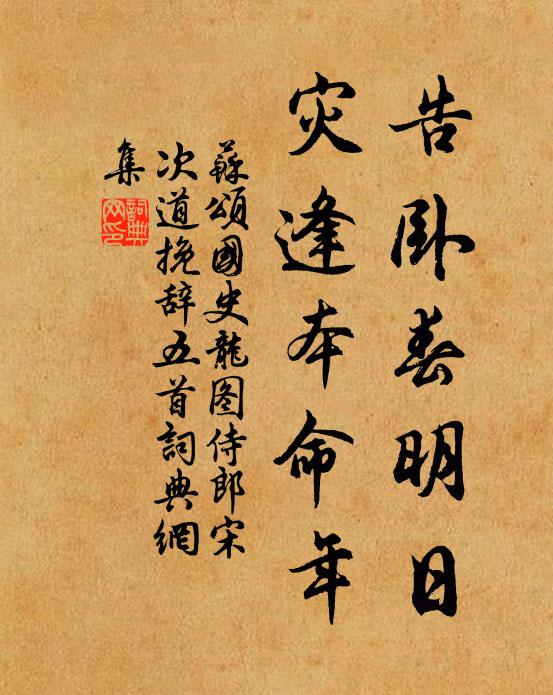 告卧春明日
灾逢本命年
蘇頌國史龍图侍郎宋
次道挽辞五首詞典網
集
詞典
网印